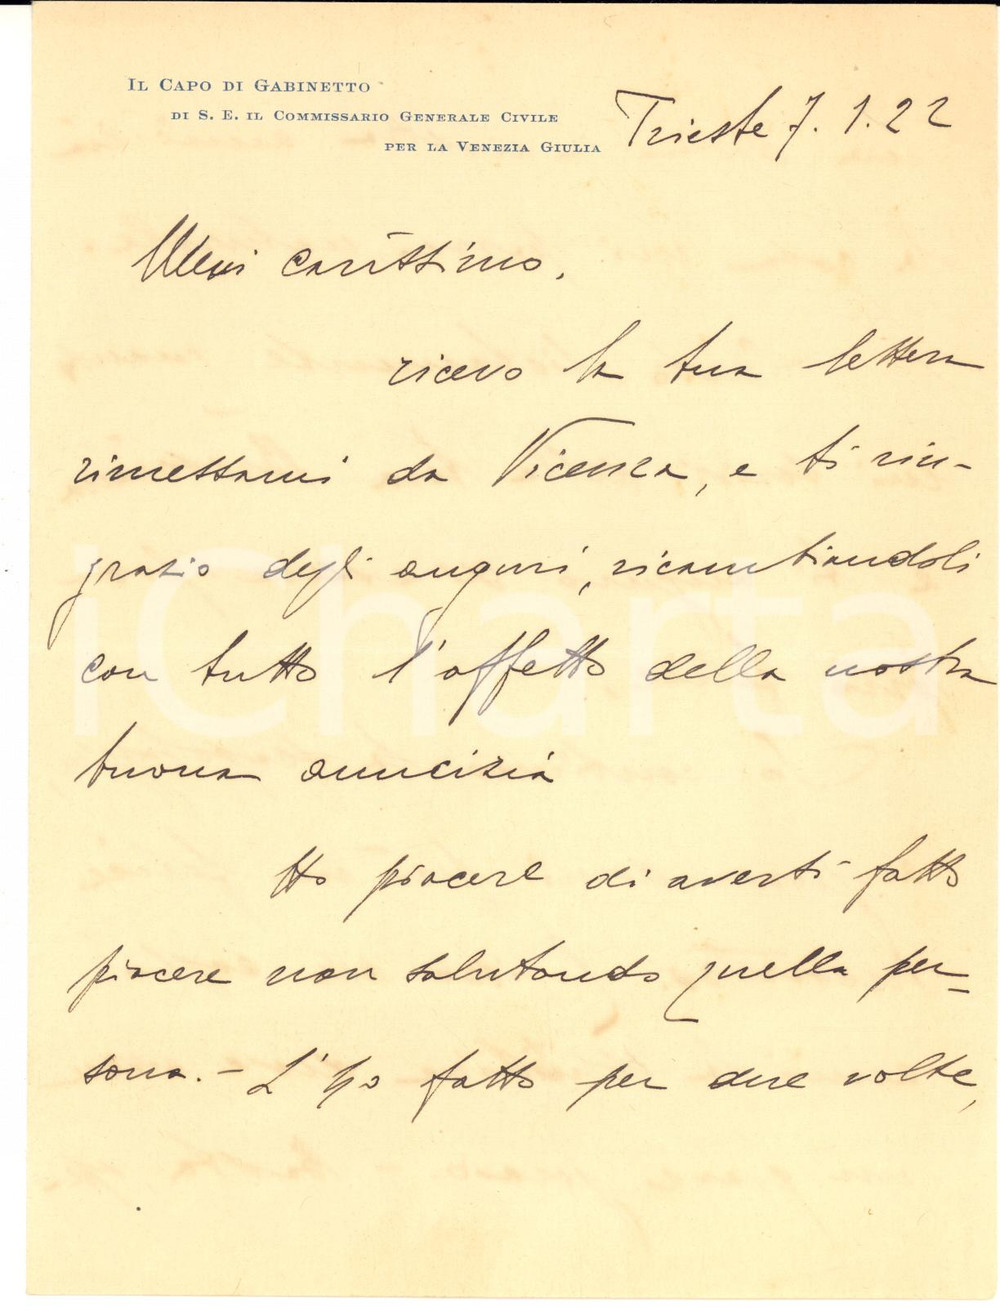 Il Capo di Gabinetto
di S. E. il Commissario Generale Civile
per la Venezia Giulia
Trieste 7.1.22
carissimo,
ricevo la tua lettera
rimettami da Vicenza, e ti rin-
grazio degli auguri, ricambiandoli
con tutto l'affetto della nostra
buona amicizia
Ho piacere di averti fatto
piacere non salutando quella per-
sona. - L'ho fatto per due volte,
iCharta